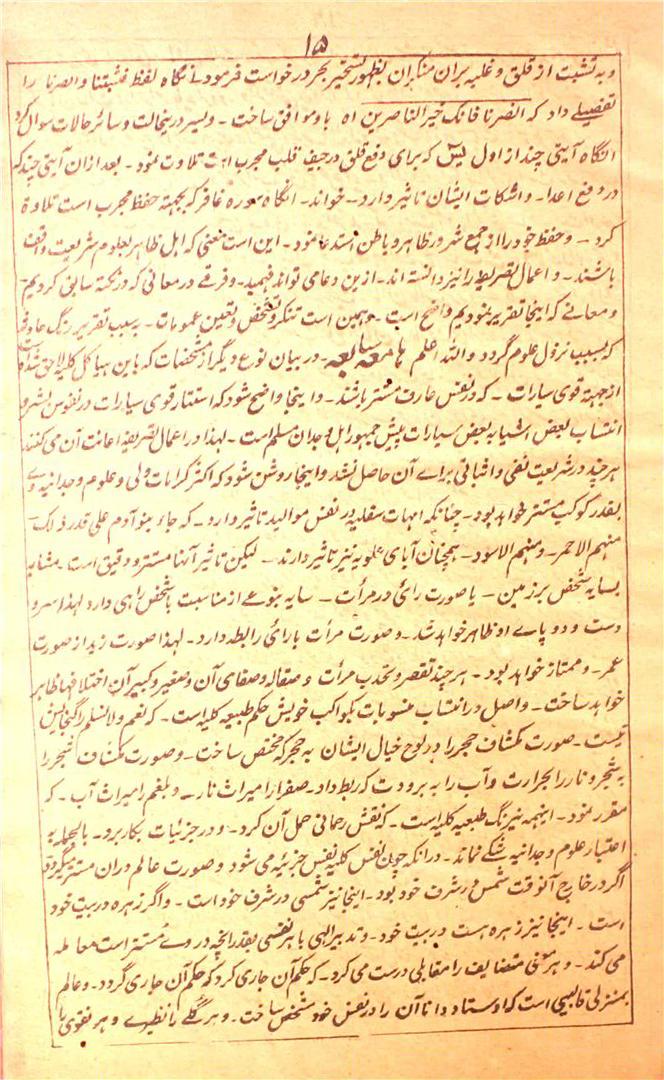 ۱۵
و به تشبث از قلق و غلبه بران منکران بظهور تسخیر بحر درخواست فرمود آنگاه لفظ فثبتنا والصرنا را
تفصیلے داد که انصرنا فانک خیر الناصرین اه باو موافق ساخت - وپسر درینحالت و سائر حالات سوال کرد
انگاه آیتی چند از اول یٰس که برای دفع قلق و رجیف قلب مجرب است تلاوت نمود - بعد ازان آیتی چند که
در دفع اعدا - و اشکات ایشان تاثیر دارد - خواند - انگاه سوره غافر که بجهته حفظ مجرب است تلاوة
کرد - و حفظ خود را از جمع شرور ظاهر و باطن استدعا نمود - این است معنی که اهل ظاهر بعلوم شریعت واقف
باشند - و اعمال تصریفیه را نیز دانسته اند - ازین دعا می تواند فهمید - و فرقے در معانی که در نکته سابق کردیم
و معانے که اینجا تقریر نمودیم واضح است - و همین است تنکر و تشخص و تعین عمومات - به سبب تقریر رنگ عارف
که بسبب نزول علوم گردد والله اعلم هامعه سابعه - در بیان نوع دیگر از مشخصات که باین هیاکل کلیه لاحق شده است
از جهته قوی سیارات - که در نفس عارف مستتر باشند - و اینجا واضح شود که استتار قوی سیارات در نفوس بشر و
انتساب بعض اشیا به بعض سیارات پیش جمهور اهل وجدان مسلم است - لهذا در اعمال تصریفیه اعانت آن می کنند
هر چند در شریعت نفی و اثباتی برای آن حاصل نشد و اینجا روشن شود که اکثر کرامات ولی و علوم وجدانیه وے
بقدر کوکب مستتر خواهد بود - چنانکه امهات سفلیه در نفس موالید تاثیر دارد - که جاء بنو آدم علی قدر ذلک
منهم الاحمر - و منهم الاسود - همچنان آبای علویه نیز تاثیر دارند - لیکن تاثیر آنها مستتر و دقیق است - مشابه
بسایه شخص بر زمین - یا صورت رائی در مرأت - سایه بنوعے از مناسبت با شخص راهی دارد لهذا سر و
دست و دو پاے او ظاهر خواهد شد - و صورت مرأت با رائی رابطه دارد - لهذا صورت زید از صورت
عمر - و ممتاز خواهد بود - هر چند تقعر و تحدب مرأت و صقاله و صفای آن و صغیر و کبیر آن اختلافها ظاهر
خواهد ساخت - و اصل در انتساب منسوبات بکواکب خویش حکم طبیعه کلیه است - که نعم و لا نسلم را گنجایش
نیست - صورت کشاف حجر را در لوح خیال ایشان به حجر که مختص ساخت - و صورت کشاف شجر را
به شجر و نار را بحرارت و آب را به برودت که ربط داد - صفرا را میراث نار - و بلغم را میراث آب - که
مقرر نمود - اینهمه نیرنگ طبیعه کلیه است - که نفس رحمانی حمل آن کرد - و در جزئیات بکار برد - بالجمله به
اعتبار علوم وجدانیه شکے نماند - درانکه چون نفس کلیه نفس جزئیه می شود و صورت عالم دران مستتر میگردد
اگر در خارج آنوقت شمس در شرف خود بود - اینجا نیز شمسی در شرف خود است - و اگر زهره در بیت خود
است - اینجا نیز زهره هست در بیت خود - و تدبیر الهی با هر نفسی بقدر انچه در وے مستتر است معامله
می کند - و هر معنی متضایف را مقابلی درست می کرد - که حکم آن جاری کرد که حکم آن جاری گردد - و عالم
بمنزلی قالبی است که اوستاد دانا آن را در نفس خود مشخص ساخت - و هر گلے را نظیرے و هر نقوی با